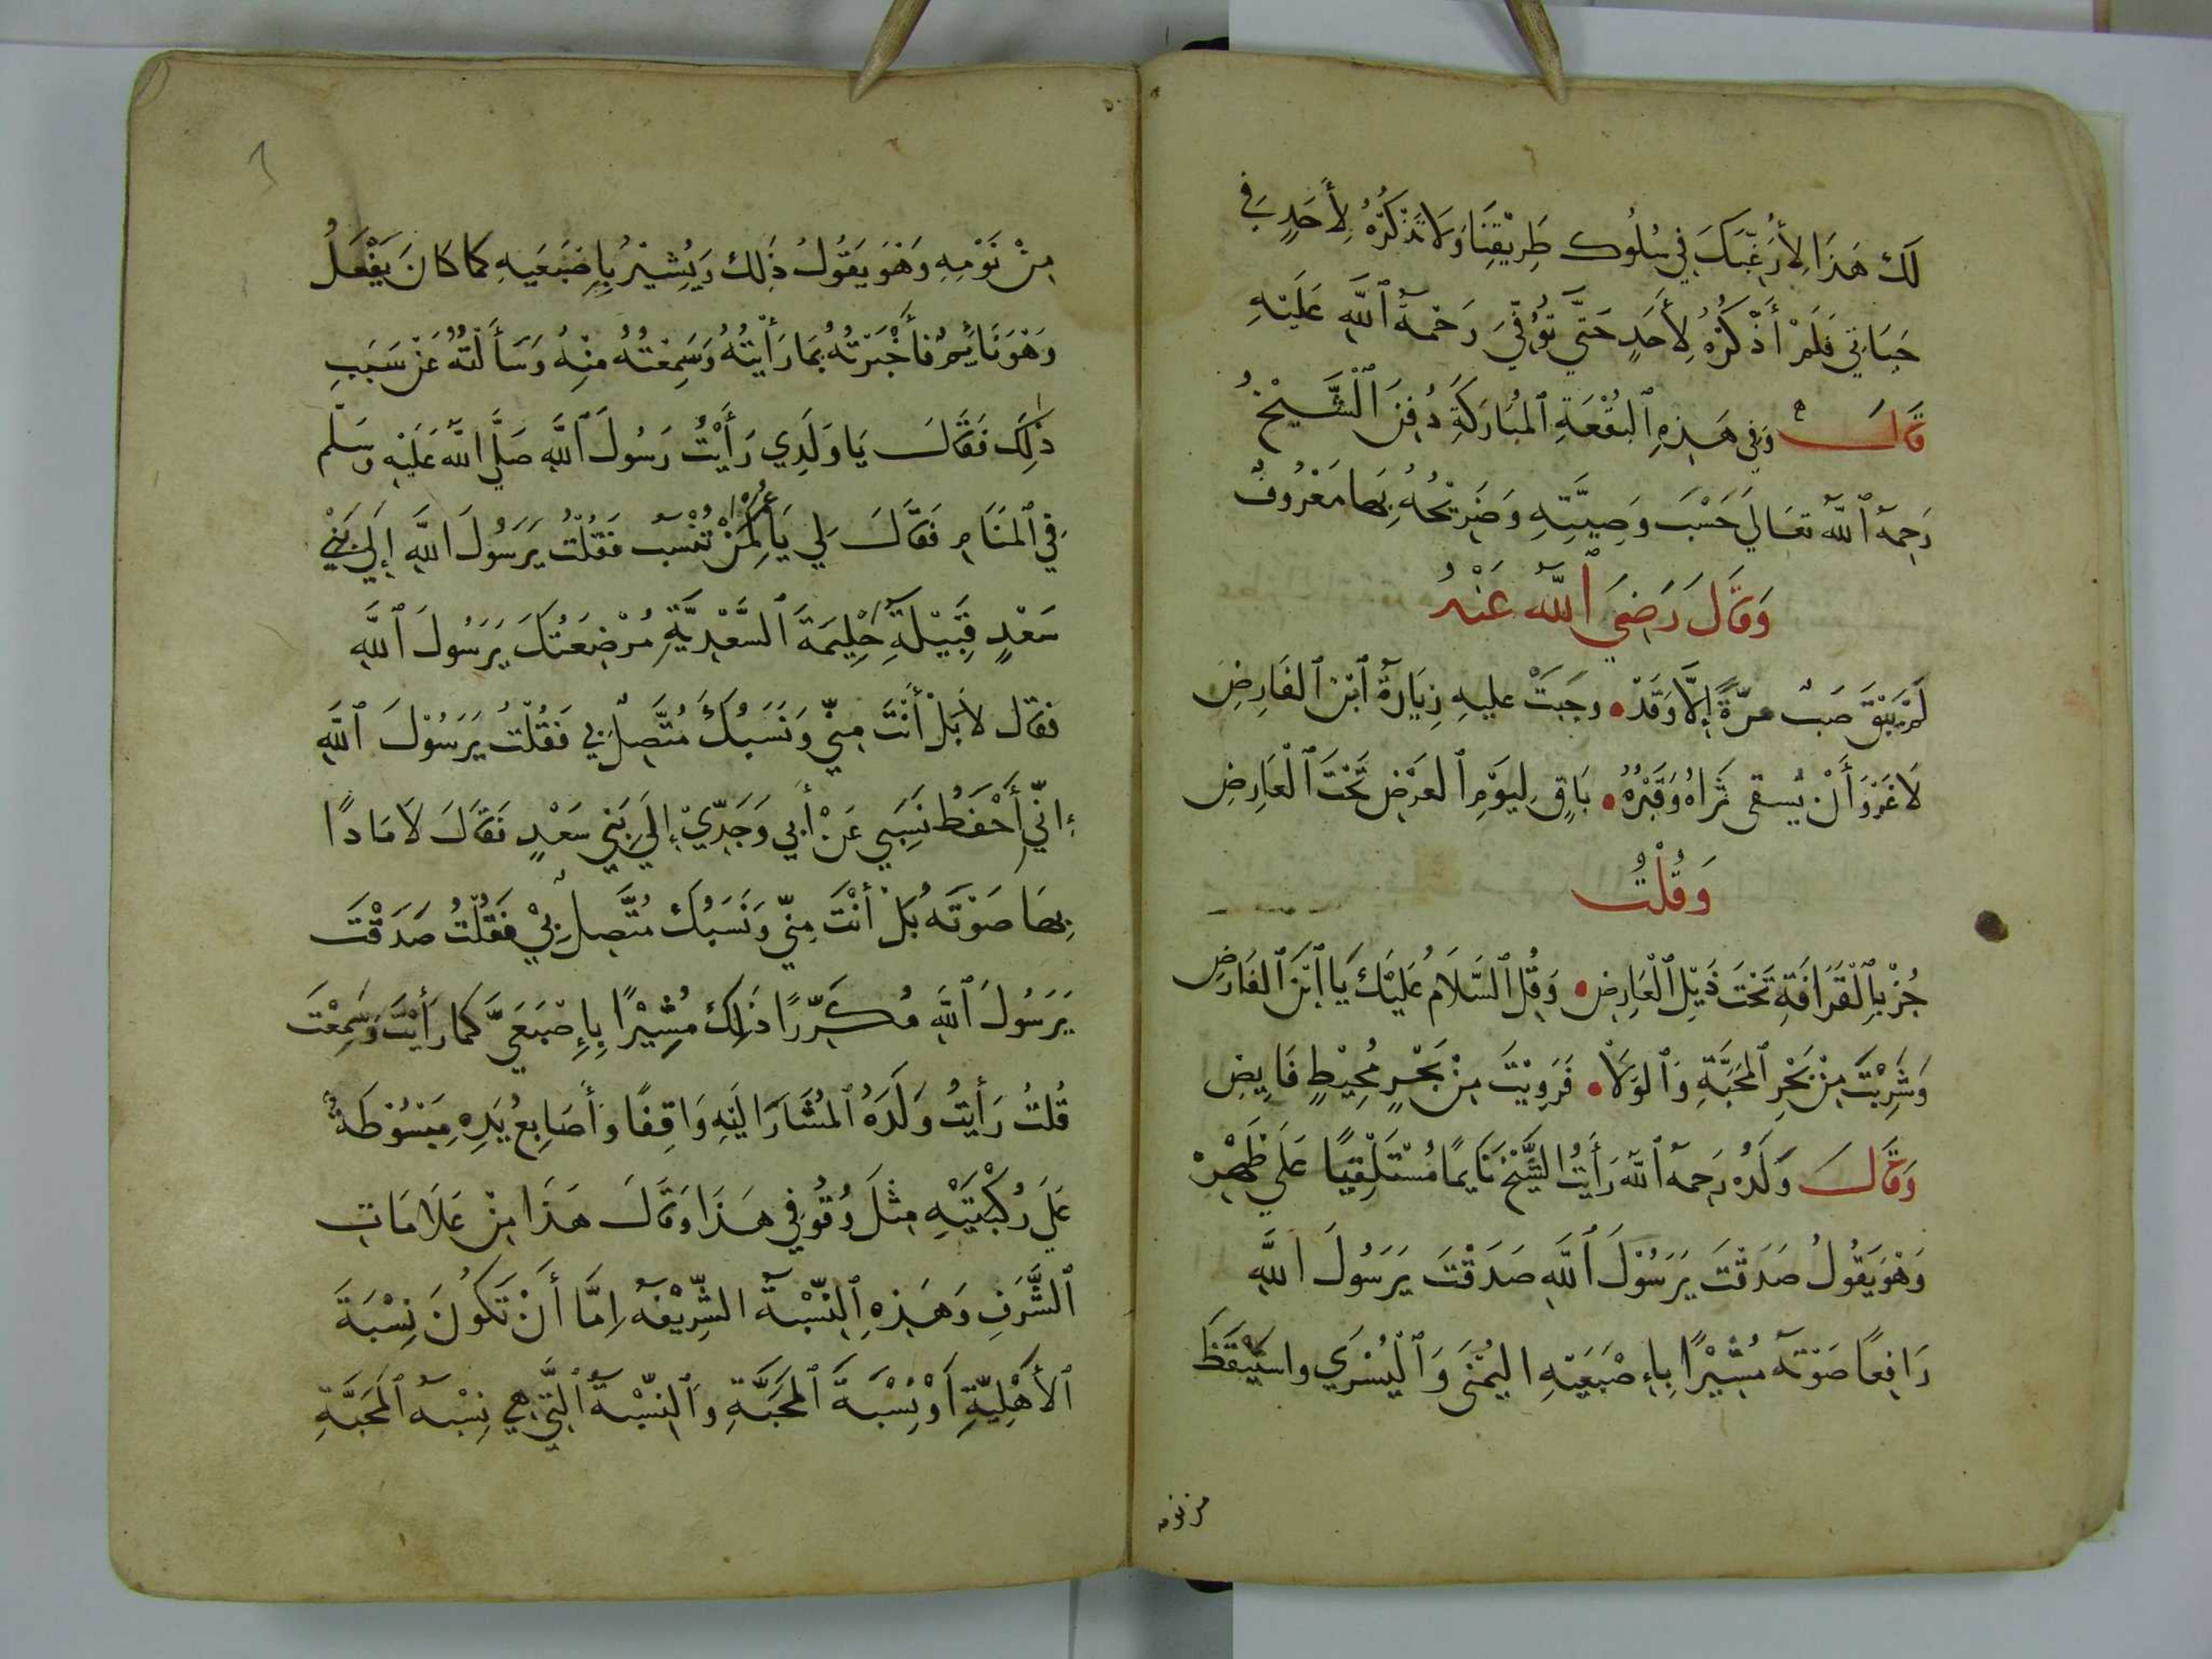 لَكَ هَذَا لِأُرَغِّبَكَ فِي سُلُوكِ طَرِيْقِنَا وَلَا تَذْكُرْهُ لِأَحَدٍ فِي
حَيَاتِي فَلَمْ أَذْكُرْهُ لِأَحَدٍ حَتَّى تُوُفِّيَ رَحْمَةُ ٱللَّهِ عَلَيْهِ
قَالَ وَفِي هَذِهِ ٱلبُقْعَةِ ٱلمُبَارَكَةِ دُفِنَ ٱلشَّيْخُ
رَحِمَهُ ٱللَّهُ تَعَالَي حَسْبَ وَصِيَّتِهِ وَضَرِيْحُهُ بِهَا مَعْرُوفٌ
وَقَالَ رَضِيَ ٱللَّهُ عَنْهُ
لَمْ يَبْقَ صَبُّ مُزْنَةٍ إِلَّا وَقَدْ • وجَبَتْ عليهِ زِيَارَةُ ٱبْنِ ٱلفَارِضِ
لَا غَرْوَ أَنْ يُسقى ثَرَاهُ وَقَبْرُهُ • بَاقٍ لِيَوْمِ ٱلعَرْضِ تَحْتَ ٱلْعَارِضِ
وَقُلْتُ
جُزْ بِٱلْقَرَافَةِ تَحْتَ ذَيْلِ ٱلْعَارِضِ • وَقُلِ ٱلسَّلَامُ عَلَيْكَ يَا ٱبْنَ ٱلفَارِضِ
وَشَرِبْتَ مِنْ بَحْرِ ٱلمَحَبَّةِ وَٱلوَلَا • فَرَوِيْتَ مِنْ بَحْرٍ مُحِيْطٍ فَايِضِ
وَقَالَ وَلَدُهُ رَحِمَهُ ٱللَّهُ رَأَيْتُ الشَّيْخَ نَايِمًا مُسْتَلْقِيًا عَلَي ظَهْرِهْ
وَهْوَ يَقُولُ صَدَقْتَ يَرَسُوْلَ ٱللَّهِ صَدَقْتَ يَرَسُولَ اللَّهِ
رَافِعًا صَوْتَهُ مُشِيْرًا بِإِصْبَعَيْهِ اليُمْنَى وَٱلْيُسْرَي واسْتَيْقَظَ
من نومه
مِنْ نَوْمِهِ وَهْوَ يَقُولُ ذَلِكَ وَيُشِيْرُ بِإِصْبَعَيهِ كَمَا كَانَ يَفْعَلُ
وَهْوَ نَايِمٌ فَأَخْبَرْتُهُ بِمَا رَأَيْتُهُ وَسَمِعْتُهُ مِنْهُ وَسَأَلْتُهُ عَنْ سَبَبِ
ذَلِكَ فَقَالَ يَا وَلَدِي رَأَيْتُ رَسُولَ ٱللَّهِ صَلَّي اللَّهُ عَلَيْهِ وسَلَّم
فِي ٱلمَنَامِ فَقَالَ لِي يَا عُمَرُ لِمَنْ تُنْسَبُ فَقُلْتُ يَرَسُولَ اللَّهِ إِلَي بَنِي
سَعْدٍ قَبِيْلَةِ حَلِيمَةَ ٱلسَّعْدِيَّةِ مُرْضِعَتُكَ يَرَسُولَ ٱللَّهِ
فقَال لَا بَلْ أَنْتَ مِنِّي وَنَسَبُكَ مُتَّصِلٌ بِي فَقُلْتُ يَرَسُوْلَ ٱللَّهِ
إِنِّي أَحْفَظُ نَسَبِي عَنْ أَبِي وَجَدِّيْ إِلَي بَنِي سَعْدٍ فَقَالَ لَا مَادًا
بِهَا صَوْتَهُ بَلْ أَنْتَ مِنِّي وَنَسَبُكَ مُتَّصِلٌ بِيْ فَقُلْتُ صَدَقْتَ
يَرَسُولَ ٱللَّهِ مُكَرِّرًا ذَلِكَ مُشِيْرًا بِإِصْبَعَيَّ كَمَا رَأَيْتَ وَسَمِعْتَ
قُلتُ رَأَيتُ وَلَدَهُ ٱلمُشَارَ اليَهِ وَاقِفًا وَأَصَابِعُ يَدِهِ مَبْسُوْطَةٌ
عَلَي رُكْبَتَيْهِ مِثْلَ وُقُوْفِي هَذَا وَقَالَ هَذَا مِنْ عَلَامَاتِ
ٱلشَّرَفِ وَهَذِهِ ٱلنِّسْبَةُ الشَّرِيْفَهُ إمَّا أَنْ تَكُونَ نِسْبَةَ
ٱلأَهْلِيَّةِ أَوْ نِسْبَةَ ٱلمَحَبَّةِ وَٱلنِّسْبَةُ ٱلَّتِي هِي نِسْبَهُ ٱلمَحَبَّةِ